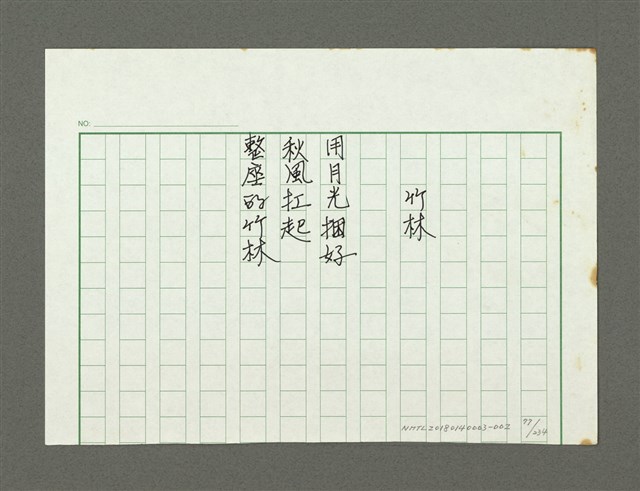 NO:
竹林
用月光捆好
秋風扛起
整座的竹林
NMTL20180140003-002
77/234